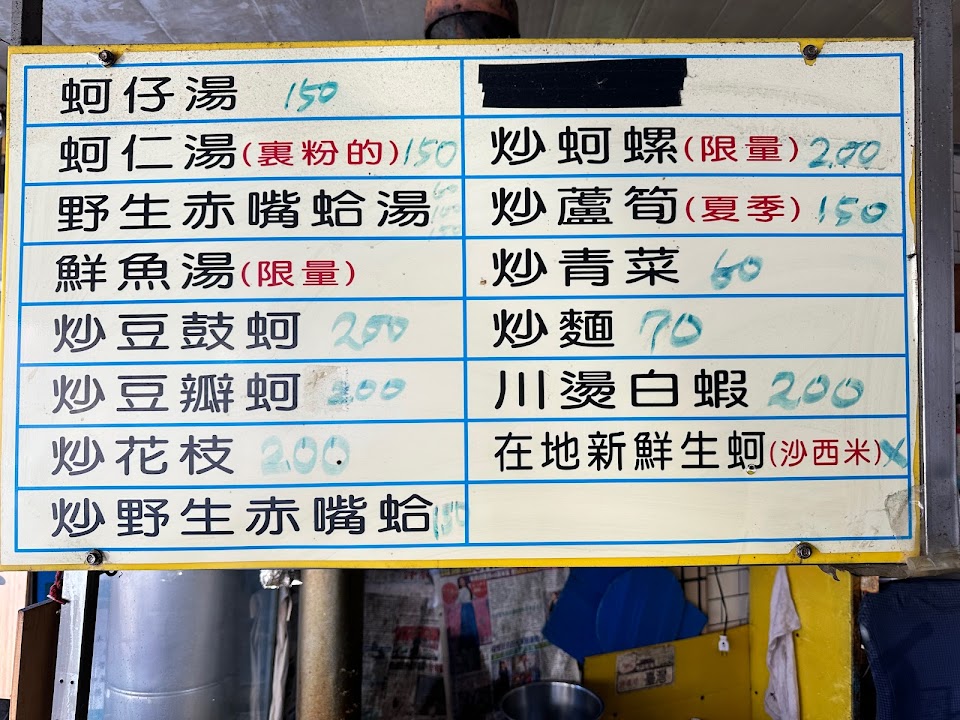 蚵仔湯 150
蚵仁湯(裹粉的)150
野生赤嘴蛤湯 60 100 150
鮮魚湯(限量)
炒豆鼓蚵 200
炒豆瓣蚵 200
炒花枝 200
炒野生赤嘴蛤 150
炒蚵螺(限量)200
炒蘆筍(夏季)150
炒青菜 60
炒麵 70
川燙白蝦 200
在地新鮮生蚵(沙西米)X